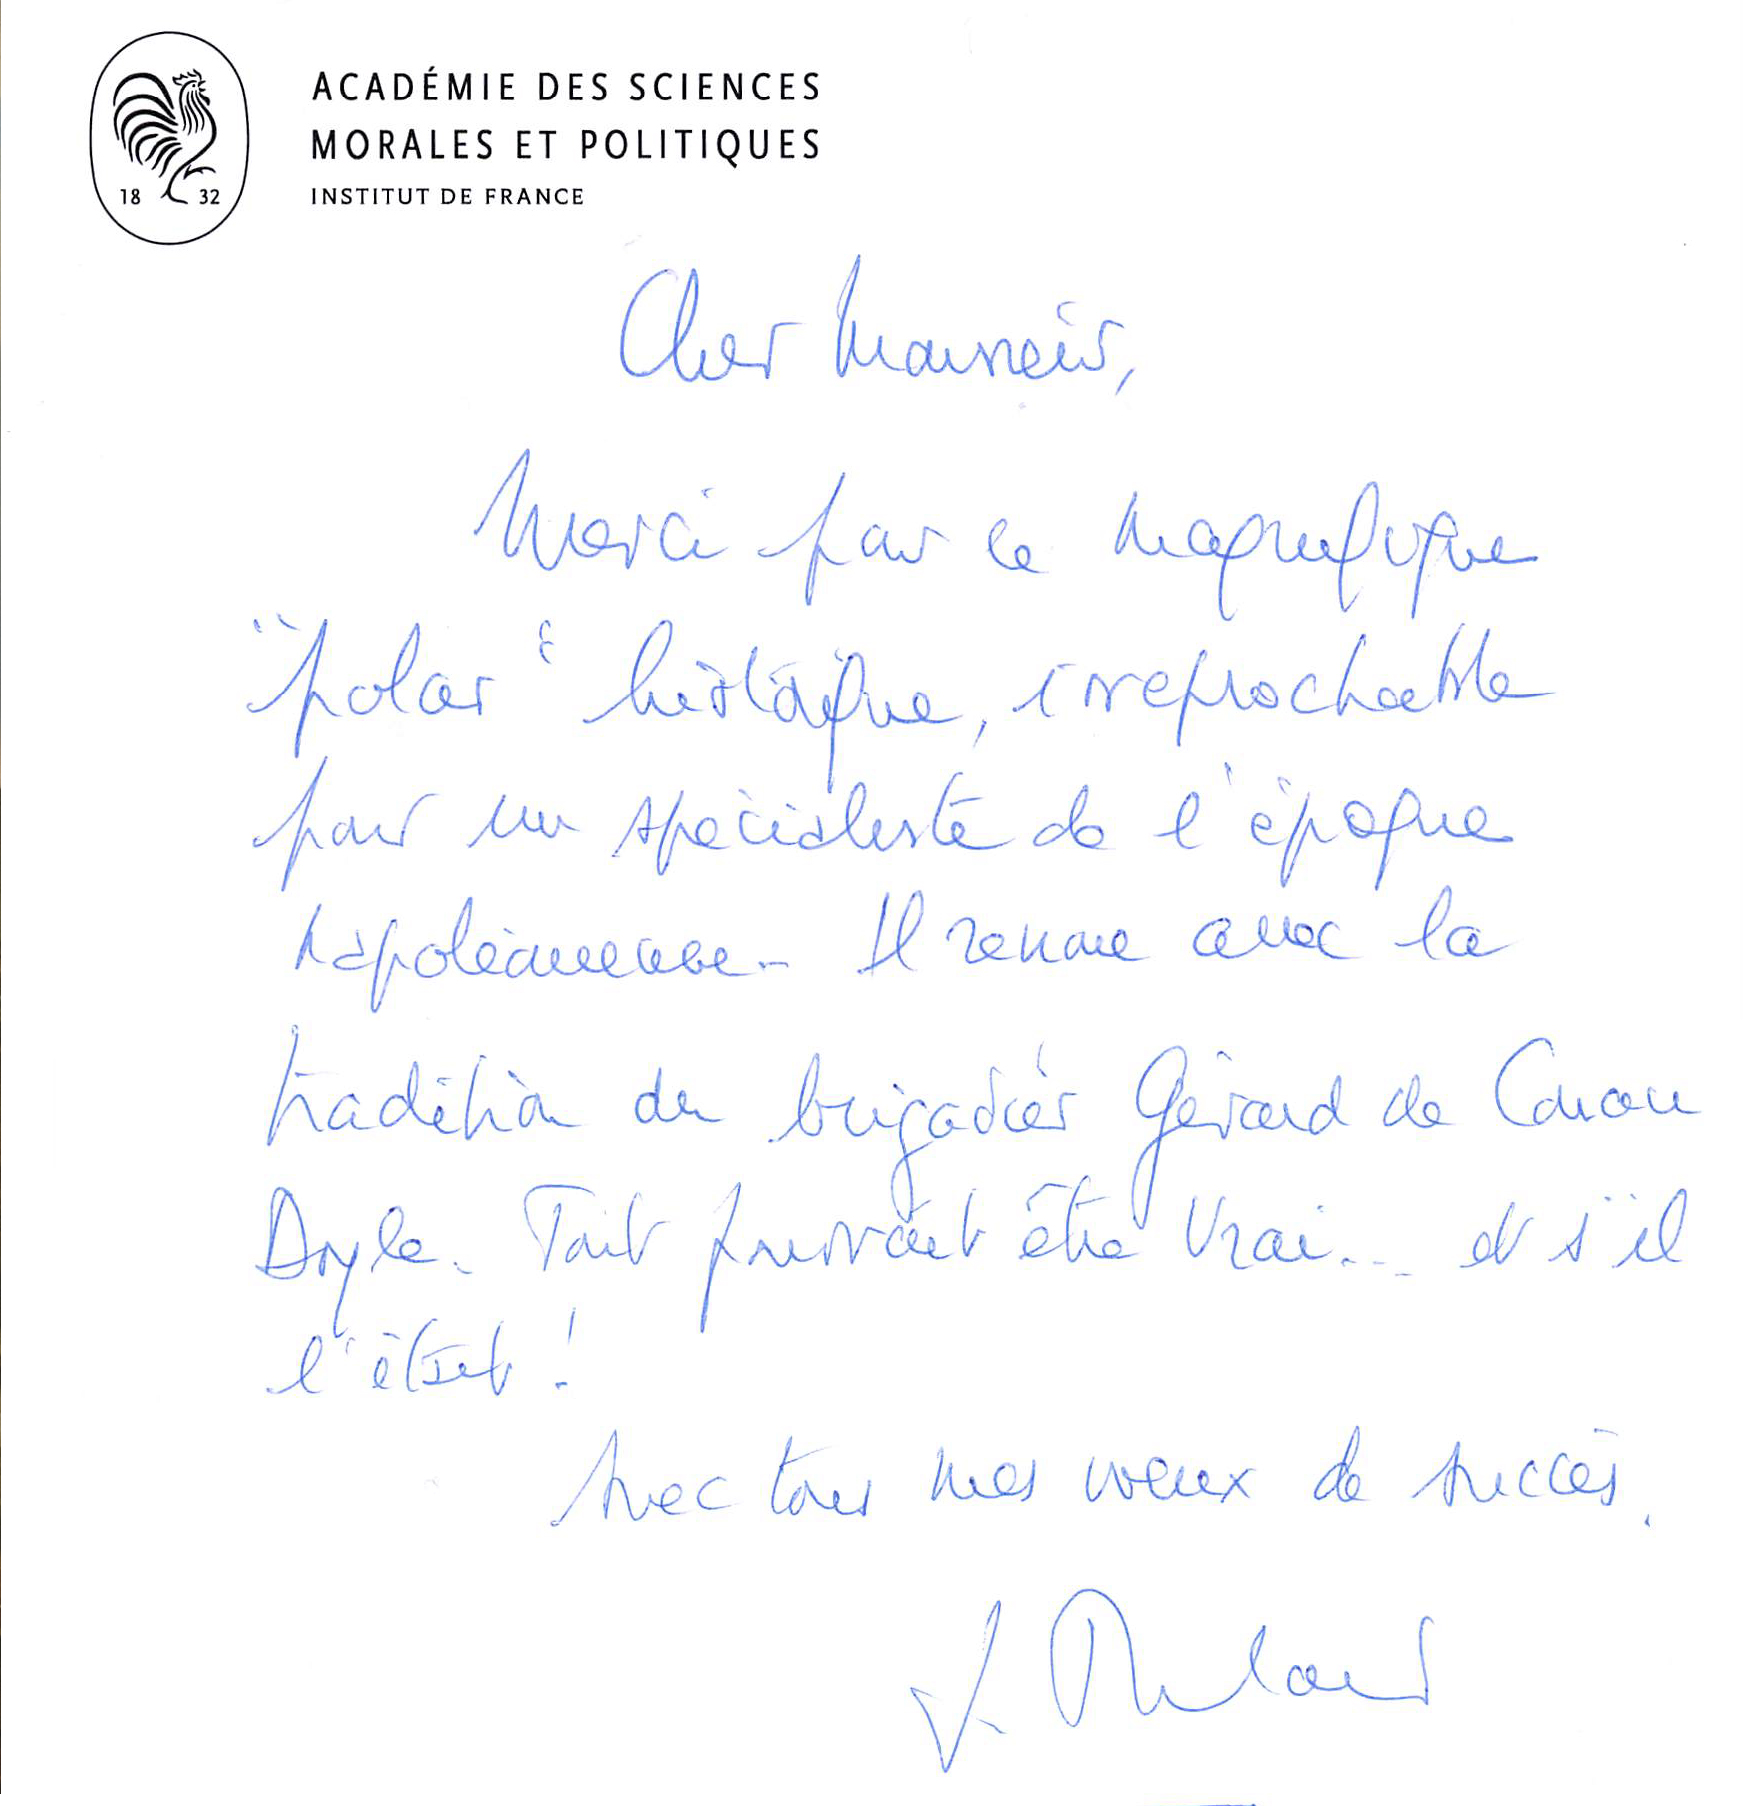 ACADÉMIE DES SCIENCES
MORALES ET POLITIQUES
INSTITUT DE FRANCE
18 32
Cher Monsieur,
Merci pour ce magnifique
"polar" historique, irréprochable
pour un spécialiste de l'époque
napoléonienne. Il renoue avec la
tradition du brigadier Gérard de Conan
Doyle. Tout pourrait être vrai... et s'il
l'était !
Avec tous mes voeux de succès.
J. Tulard